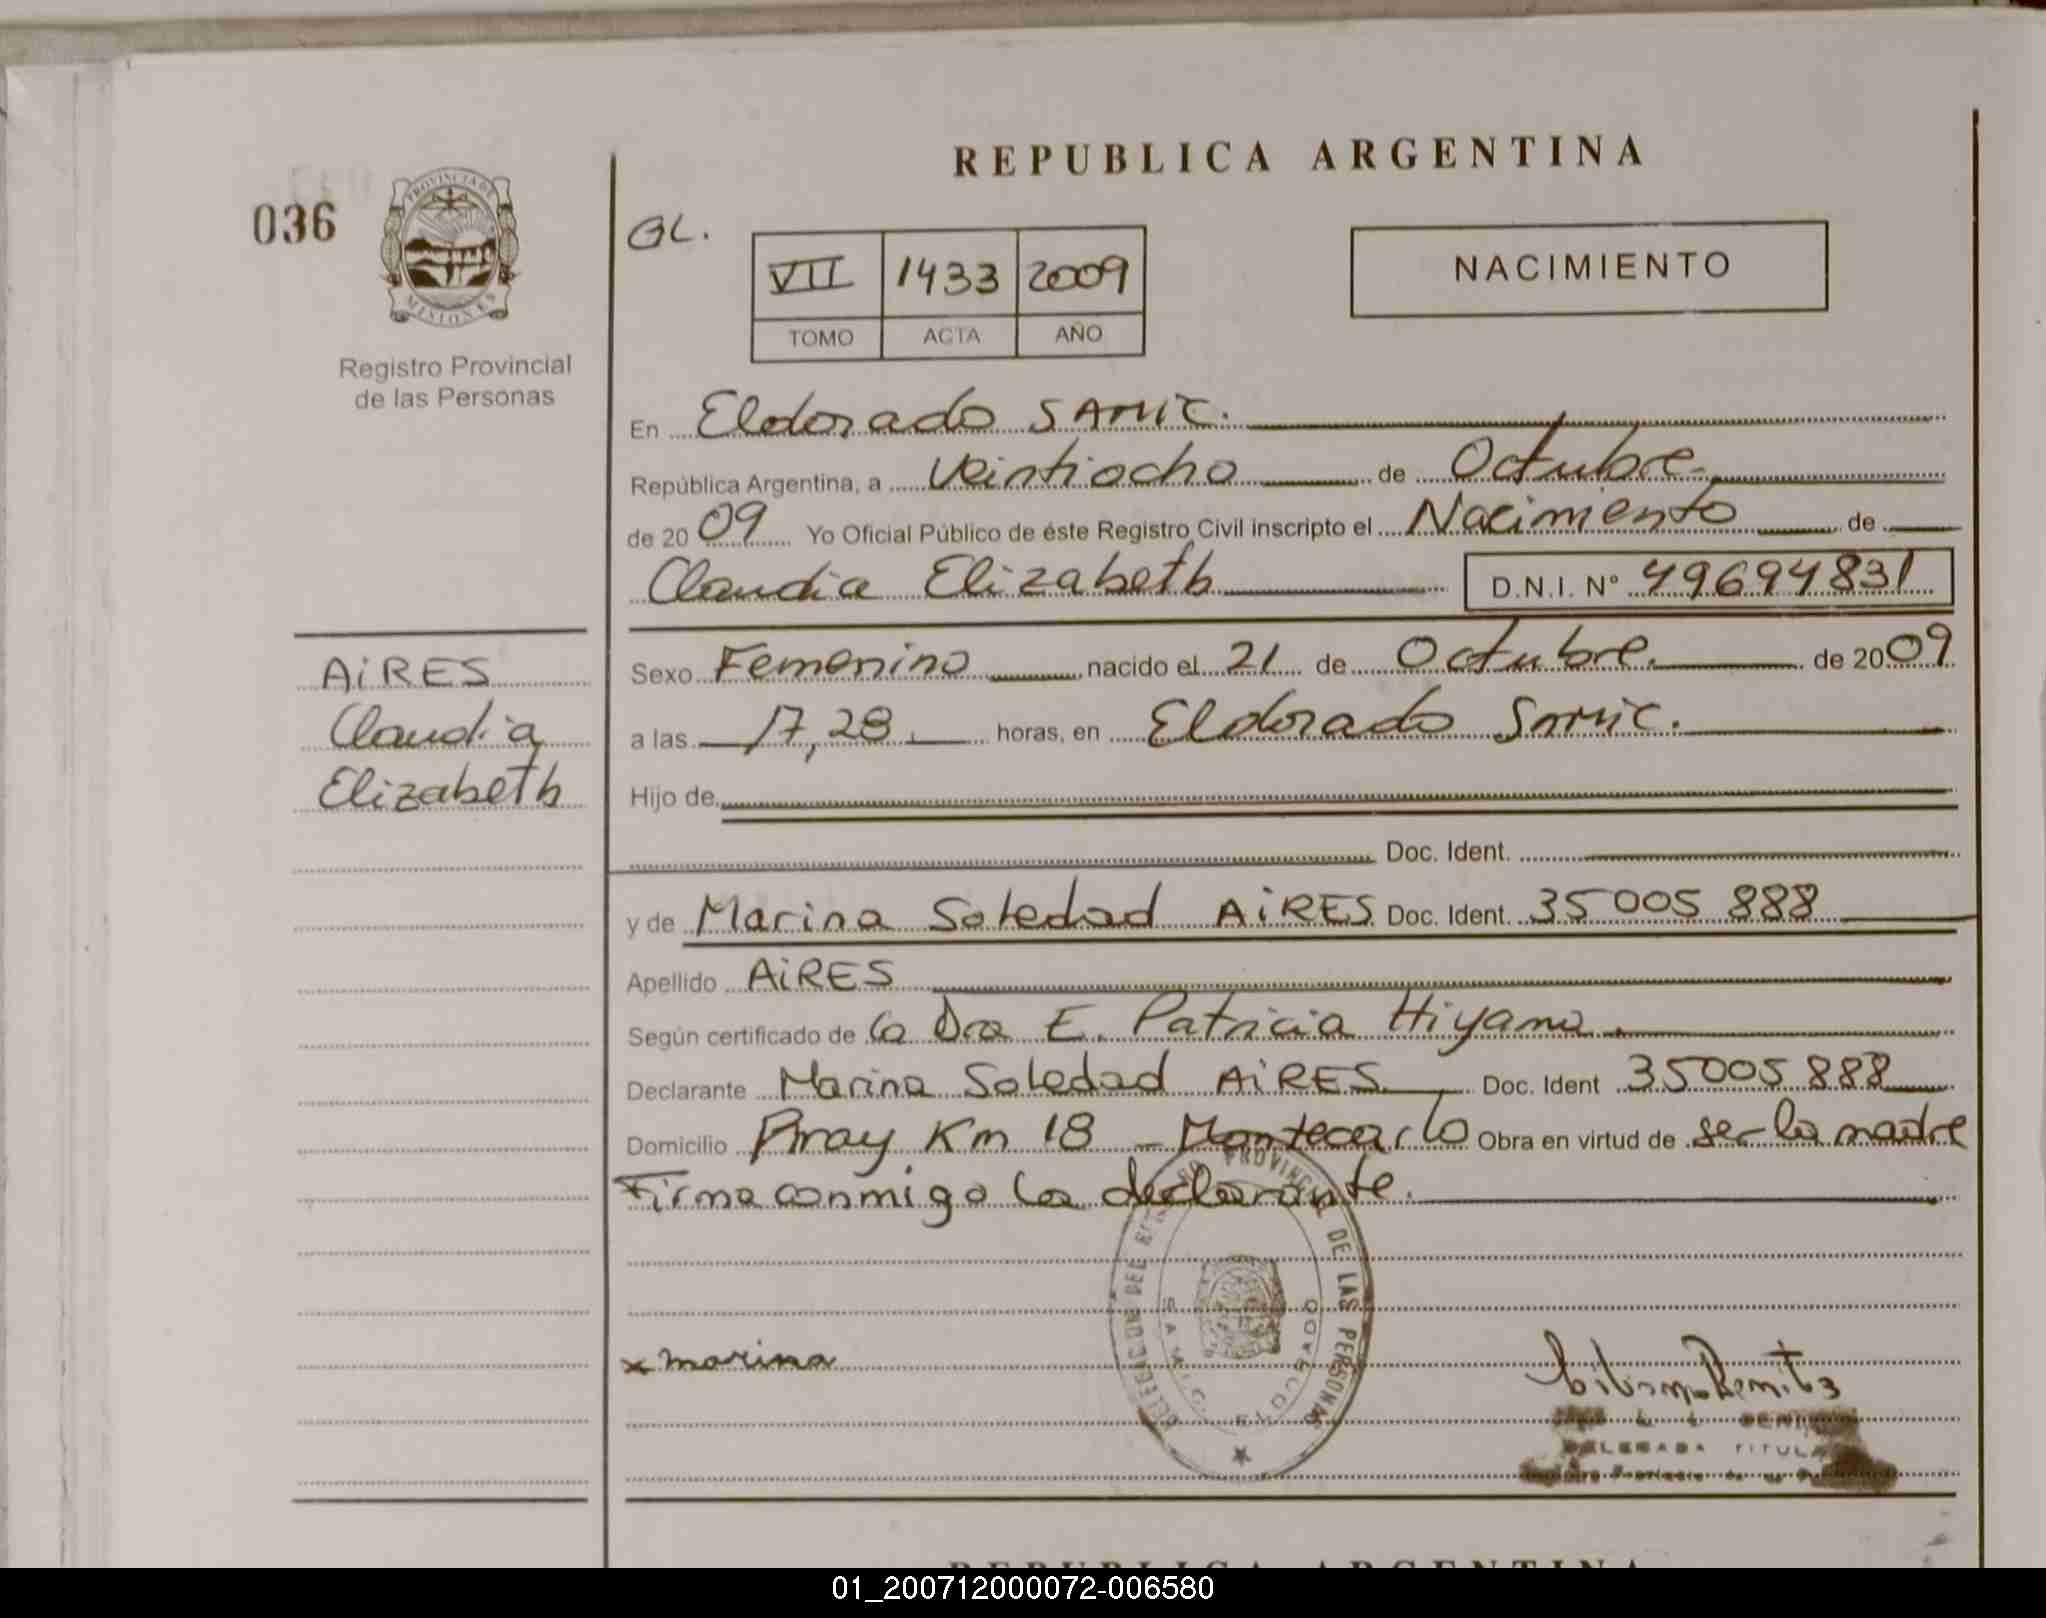 REPUBLICA ARGENTINA
036
PROVINCIA DE
MISIONES
Registro Provincial
de las Personas
GL.
VII 1433 2009
TOMO ACTA AÑO
NACIMIENTO
En Eldorado SAMIC.
República Argentina, a Veintiocho de Octubre
de 2009 Yo Oficial Público de éste Registro Civil inscripto el Nacimiento de
Claudia Elizabeth D.N.I. Nº 49694831
AiRES
Claudia
Elizabeth
Sexo Femenino nacido el 21 de Octubre de 2009
a las 17,28 horas, en Eldorado Samic.
Hijo de
Doc. Ident.
y de Marina Soledad AiRES Doc. Ident. 35005 888
Apellido AiRES
Según certificado de la Dra E. Patricia Hiyama.
Declarante Marina Soledad AiRES Doc. Ident 35005888
Domicilio Piray Km 18 - Montecarlo Obra en virtud de ser la madre
Firma conmigo la declarante.
PROVINCIAL DE LAS PERSONAS
S.A.M.I.C. ELDORADO
x marina
DELEGADA TITULAR
REPUBLICA ARGENTINA
01_200712000072-006580